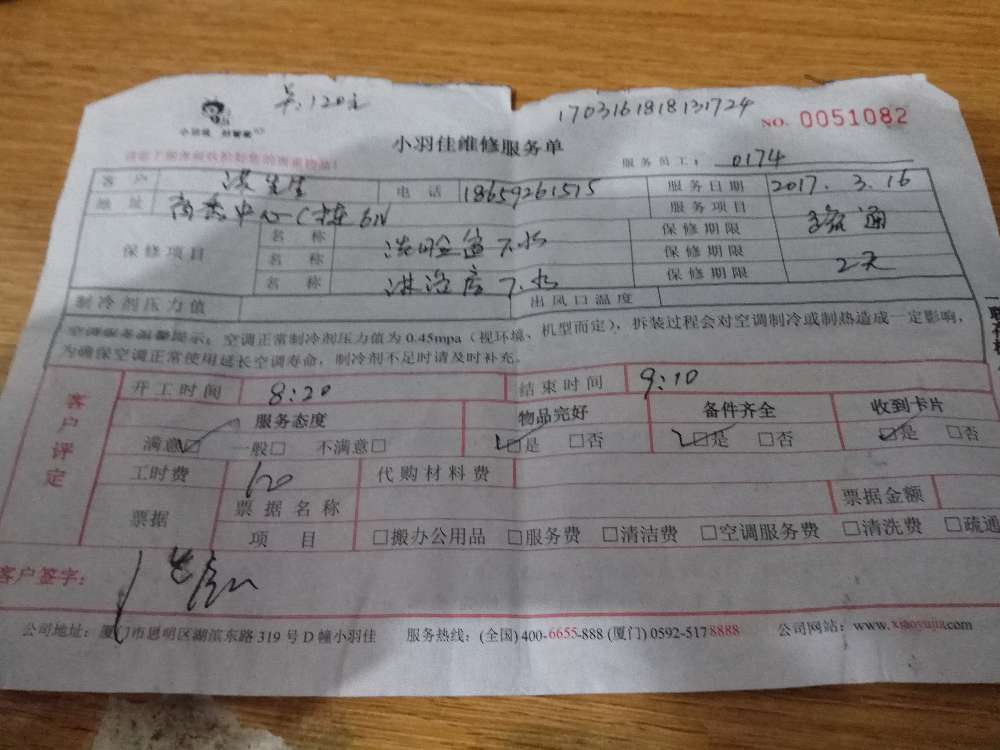 共:120元
1703161818131724
NO. 0051082
小羽佳维修服务单
服务员工: 0174
客户 电话 18659261575 服务日期 2017.3.16
地址 商务中心C栋6N 服务项目 疏通
保修项目 名称 洗脸盆下水 保修期限
名称 保修期限 2天
名称 淋浴房下水 保修期限
制冷剂压力值 出风口温度
空调服务温馨提示:空调正常制冷剂压力值为0.45mpa(视环境、机型而定),拆装过程会对空调制冷或制热造成一定影响,
为确保空调正常使用延长空调寿命,制冷剂不足时请及时补充。
客户评定
开工时间 8:20 结束时间 9:10
服务态度 物品完好 备件齐全 收到卡片
满意☑ 一般□ 不满意□ ☑是 □否 ☑是 □否 ☑是 □否
工时费 120 代购材料费
票据 票据名称 票据金额
项目 □搬办公用品 □服务费 □清洁费 □空调服务费 □清洗费 □疏通
客户签字:
公司地址:厦门市思明区湖滨东路319号D幢小羽佳 服务热线:(全国)400-6655-888 (厦门)0592-5178888 公司网站:www.xiaoyujia.com